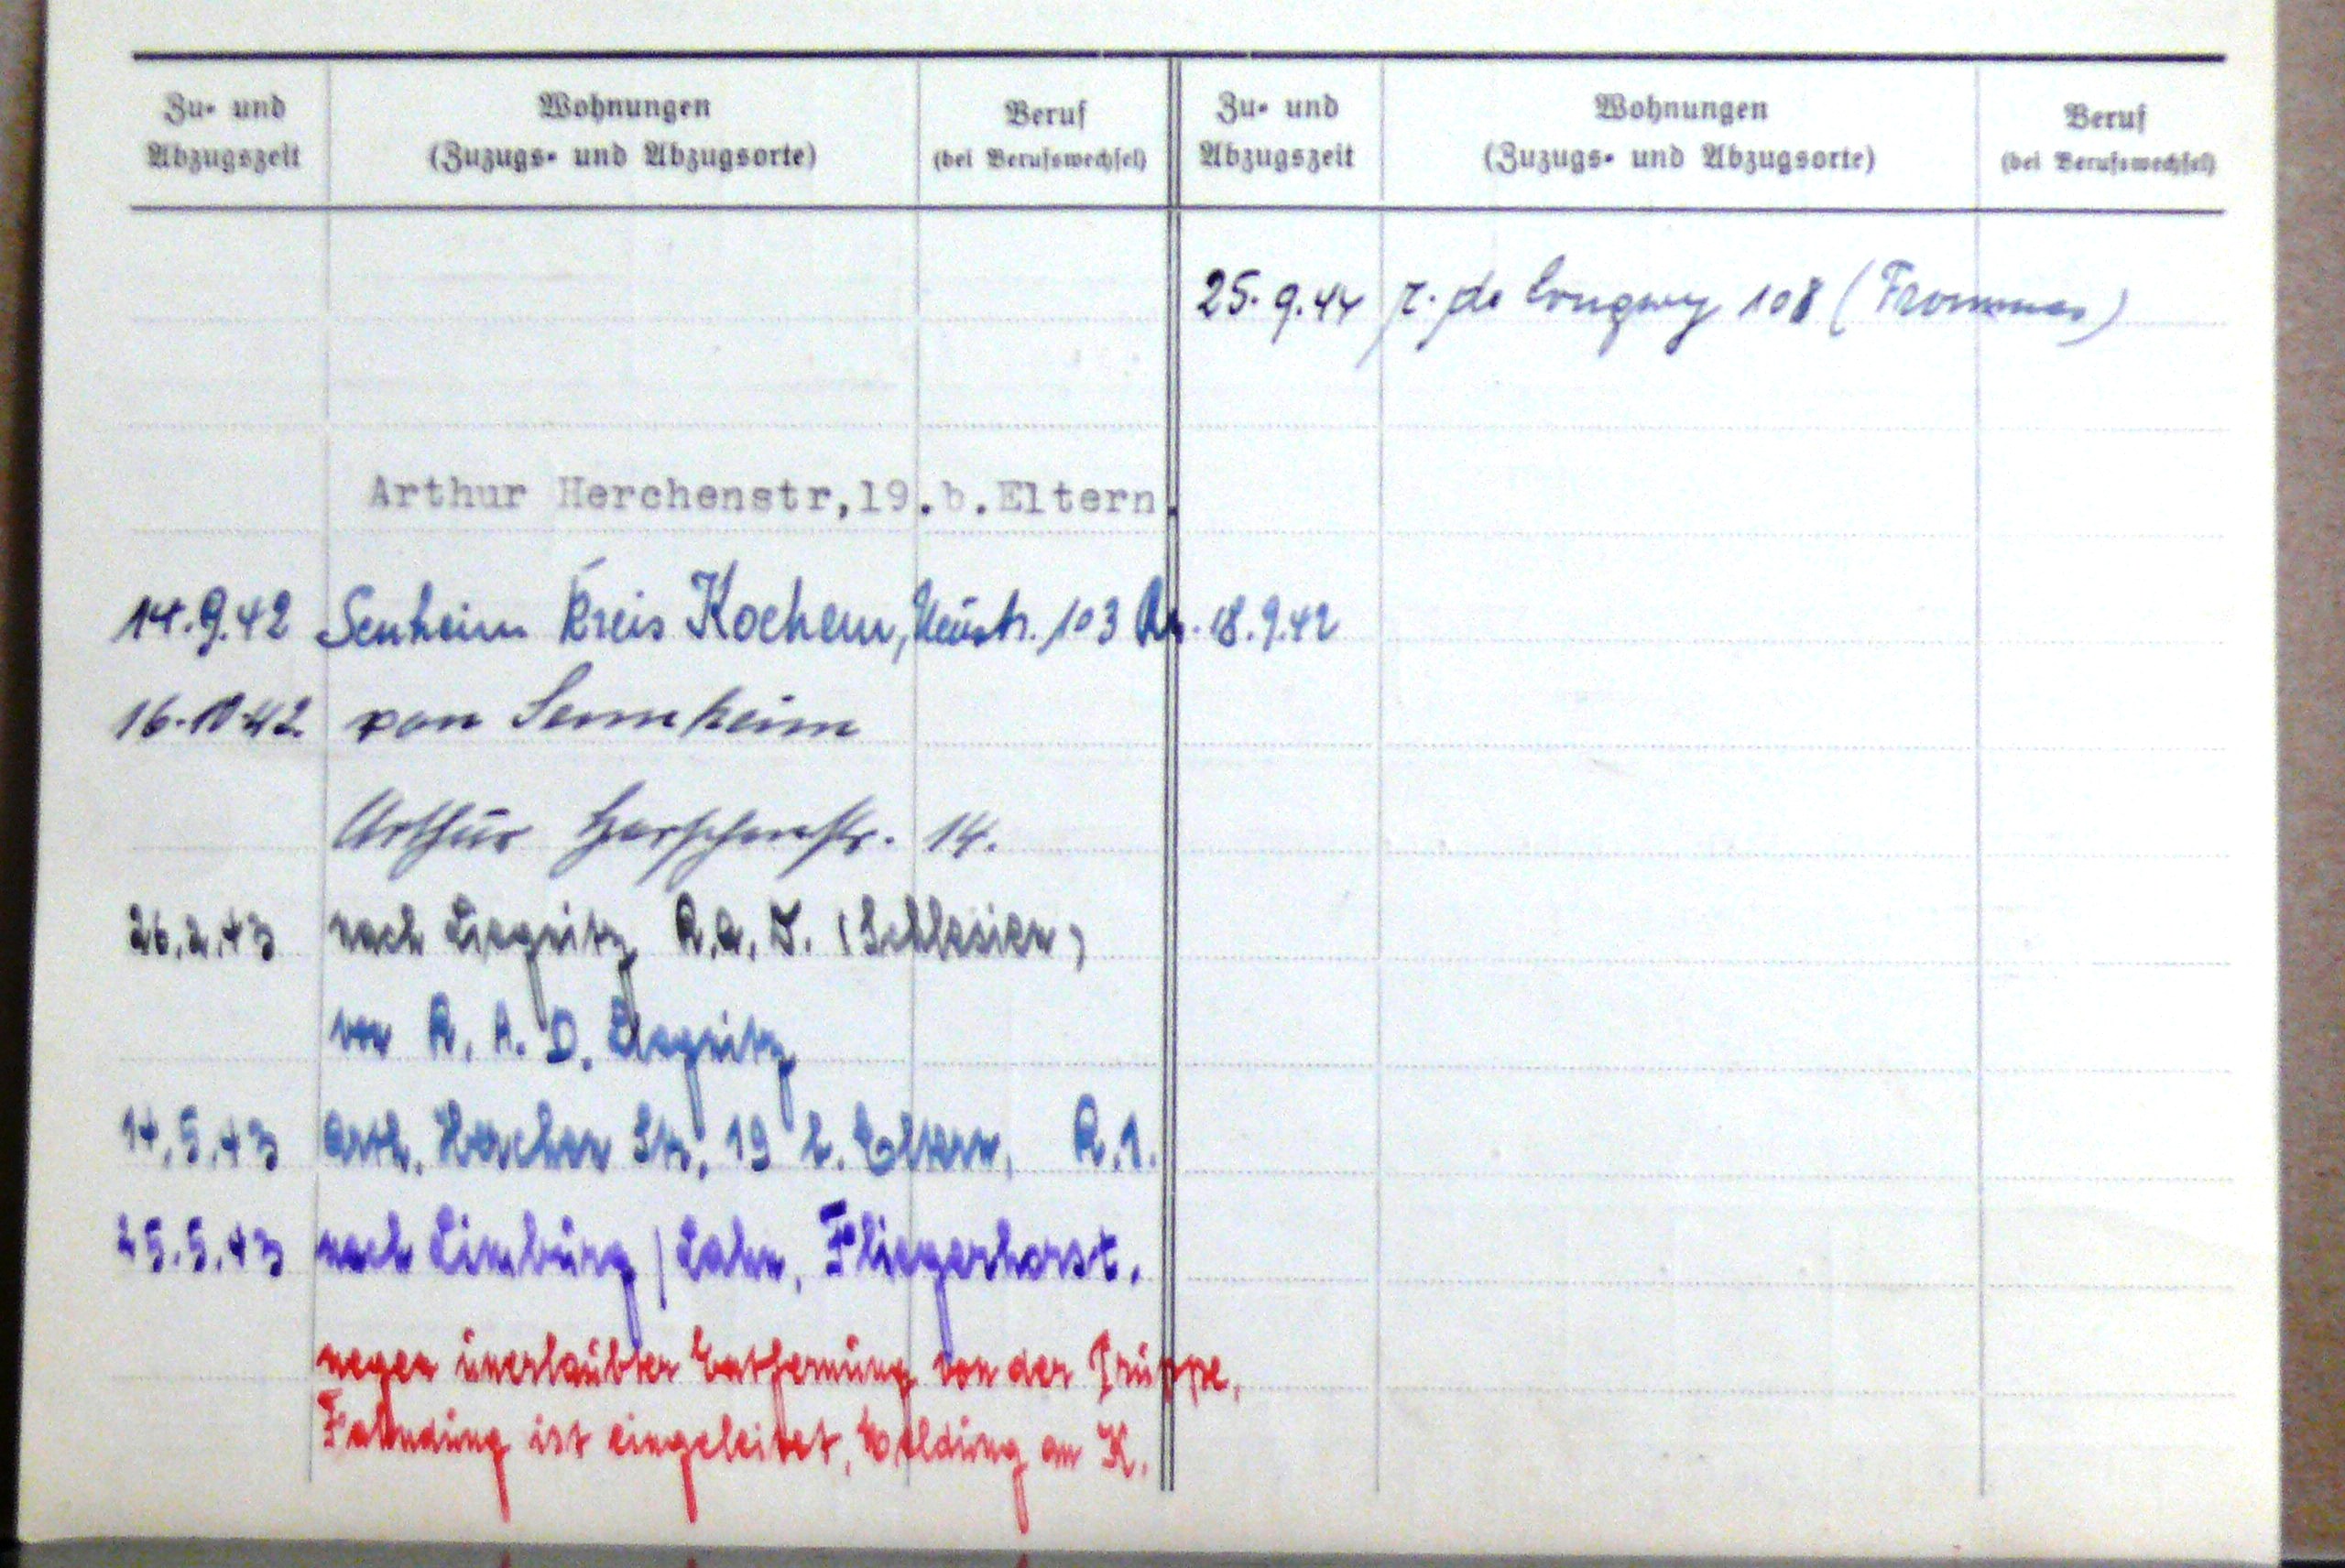 Zu- und Abzugszeit
Wohnungen (Zuzugs- und Abzugsorte)
Beruf (bei Berufswechsel)
Zu- und Abzugszeit
Wohnungen (Zuzugs- und Abzugsorte)
Beruf (bei Berufswechsel)
Arthur Herchenstr,19.b.Eltern.
14.9.42 Senheim Kreis Kochem, 103 18.9.42
16.10.42 von Sennheim
Arthur Herchenstr. 14.
26.2.43 nach Liegnitz R.A.D. (Schlesien)
von R.A.D. Liegnitz
14.5.43 Arth. Herchen Str. 19 b. Eltern, R.1.
25.5.43 nach Limburg / Lahn, Fliegerhorst.
wegen unerlaubter Entfernung von der Truppe,
Fahndung ist eingeleitet, Meldung an K.
25.9.44 r. de Longwy 108 (Frommes)